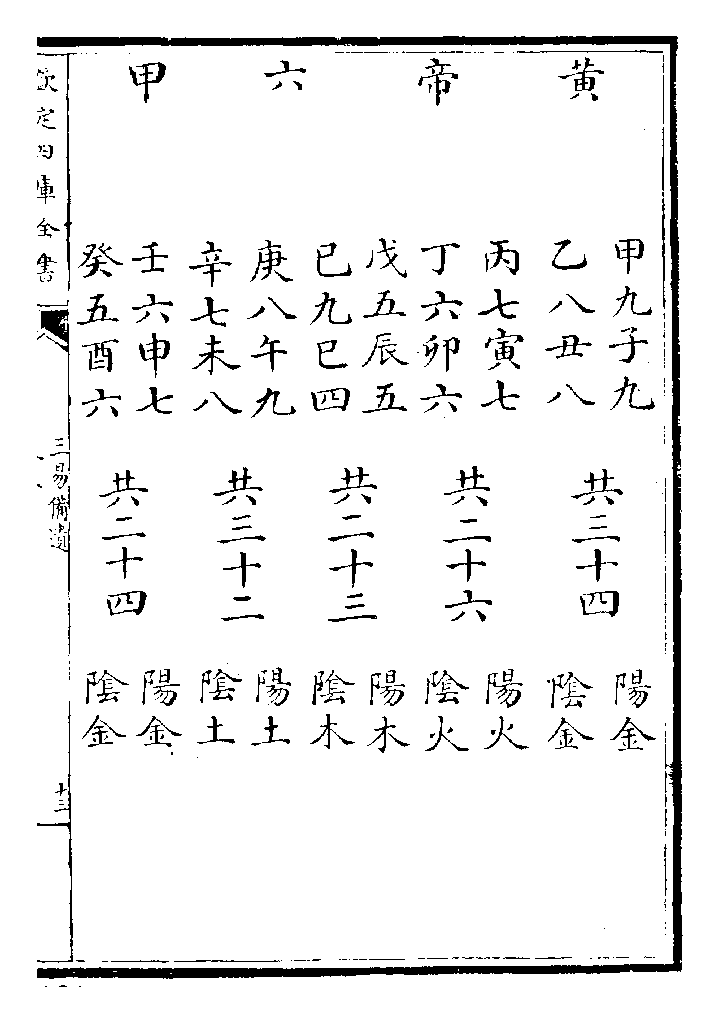 黄帝六甲
甲九子九
乙八丑八
共三十四
陽金
陰金
丙七寅七
丁六卯六
共二十六
陽火
陰火
戊五辰五
巳九巳四
共二十三
陽木
陰木
庚八午九
辛七未八
共三十二
陽土
陰土
壬六申七
癸五酉六
共二十四
陽金
陰金
欽定四庫全書
三易備遺
十三